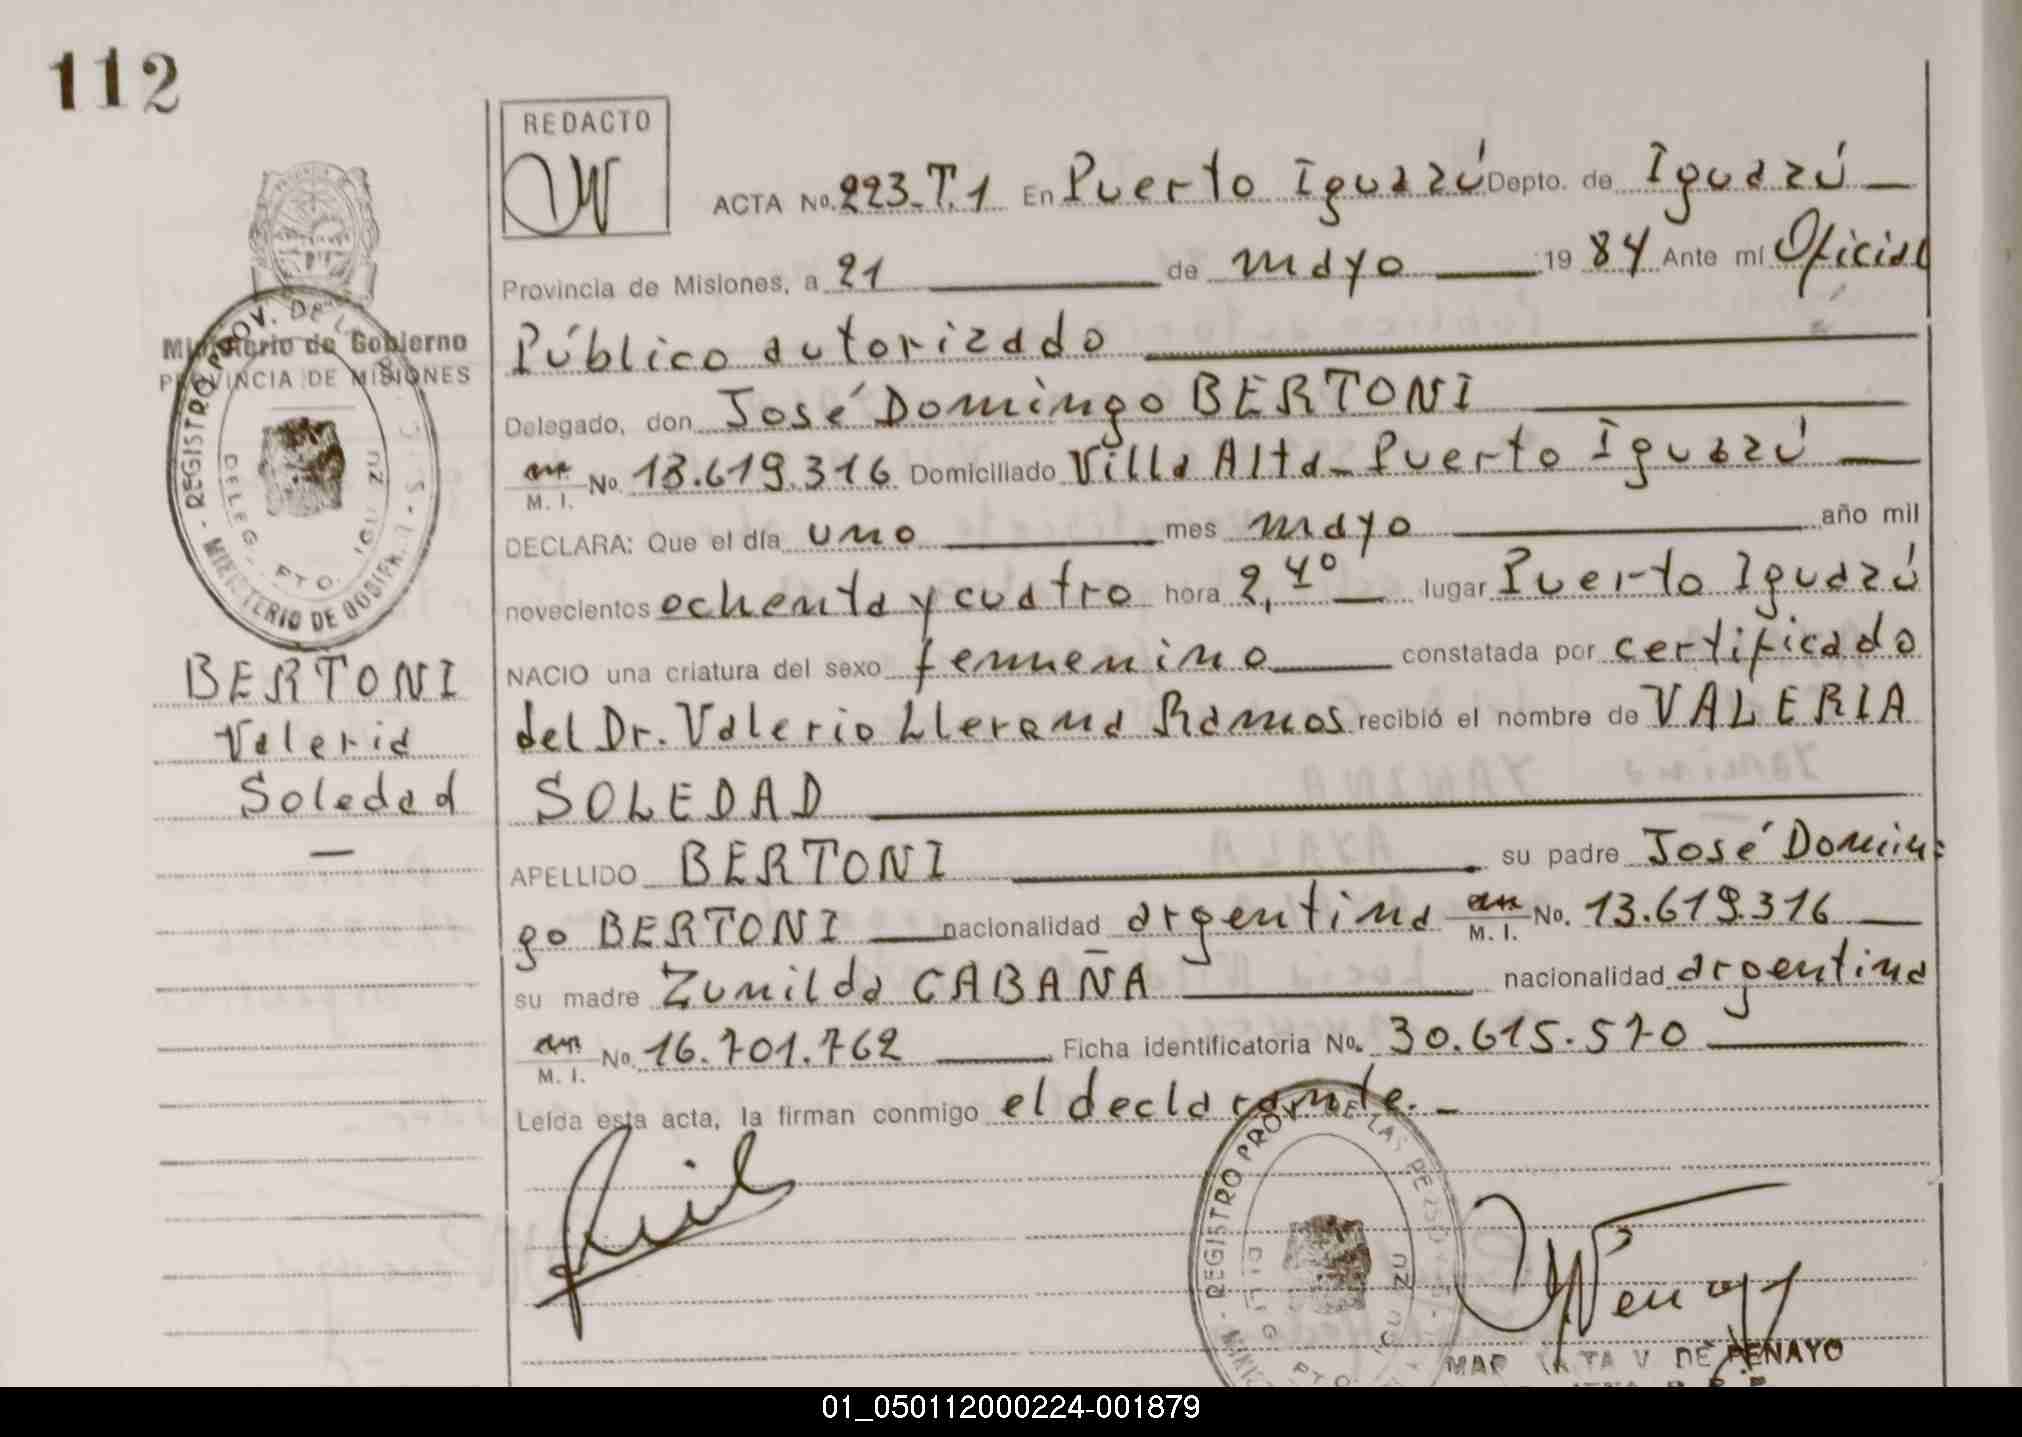 112
REDACTO
ACTA No. 223-T.1 En Puerto Iguazú Depto. de Iguazú
Provincia de Misiones, a 21 de mayo 1984 Ante mí Oficial
Público autorizado
Delegado, don José Domingo BERTONI
M. I. No. 13.619.316 Domiciliado Villa Alta - Puerto Iguazú
DECLARA: Que el día uno mes mayo año mil
novecientos ochenta y cuatro hora 2,40 lugar Puerto Iguazú
NACIO una criatura del sexo femenino constatada por certificado
del Dr. Valerio Llerana Ramos recibió el nombre de VALERIA
SOLEDAD
APELLIDO BERTONI su padre José Domin=
go BERTONI nacionalidad argentina M. I. No. 13.619.316
su madre Zunilda CABAÑA nacionalidad argentina
M. I. No. 16.701.762 Ficha identificatoria No. 30.615.570
Leída esta acta, la firman conmigo el declarante. -
Ministerio de Gobierno
PROVINCIA DE MISIONES
REGISTRO PROV. DE LAS
DELEG. PTO. IGUAZU
MINISTERIO DE GOBIERNO
BERTONI
Valeria
Soledad
REGISTRO PROV. DE LAS PERSONAS
PTO.
V. DE PENAYO
01_050112000224-001879